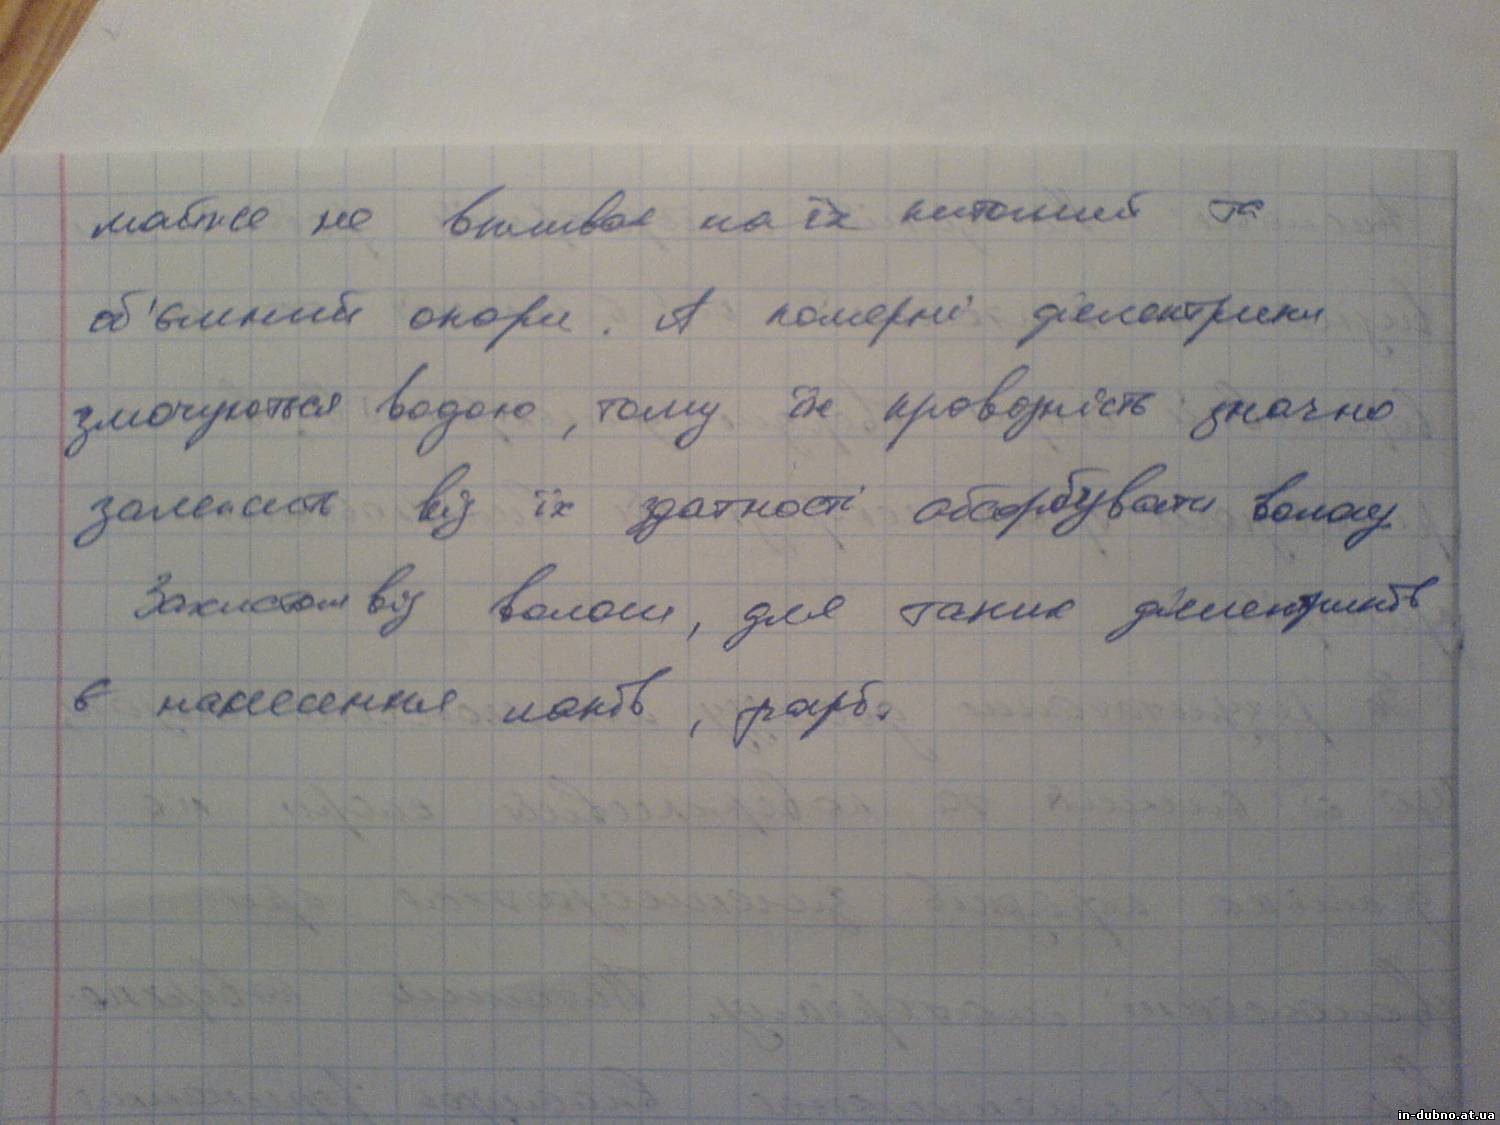 майже не впливає на їх питомий та
об'ємний опори. А полярні діелектрики
змочуються водою, тому їх провідність значно
залежить від їх здатності абсорбувати вологу
Захистом від вологи, для таких діелектриків
є нанесення лаків, фарб.
in-dubno.at.ua